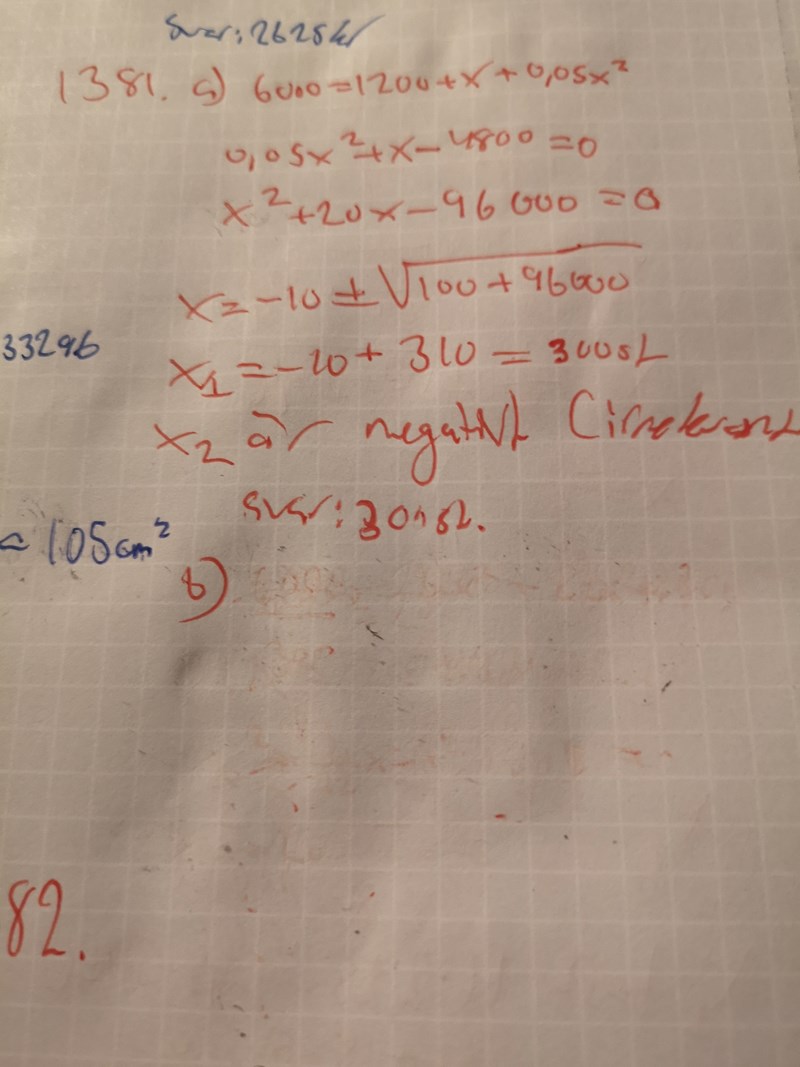 Svar: 2625kr
1381. a) 6000=1200+x+0,05x²
0,05x²+x-4800=0
x²+20x-96000=0
x=-10±√100+96000
33296
x₁=-10+310=300st
x₂ är negativt
≈105cm²
svar: 300st.
b)
82.